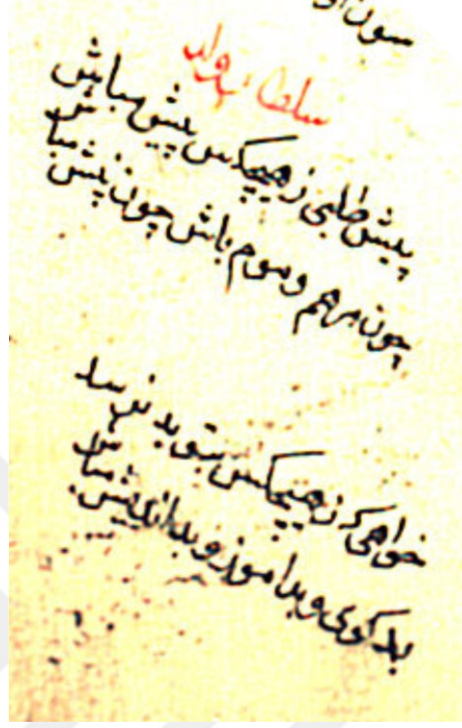 سون او
سلطان ولد
بیش طلبی ز هیچکس پیش مباش
چون مرهم و موم باش چون نیش مباش
خواهی که ز هیچکس بتو بد نرسد
بد کوی و بد اموز و بد اندیش مباش